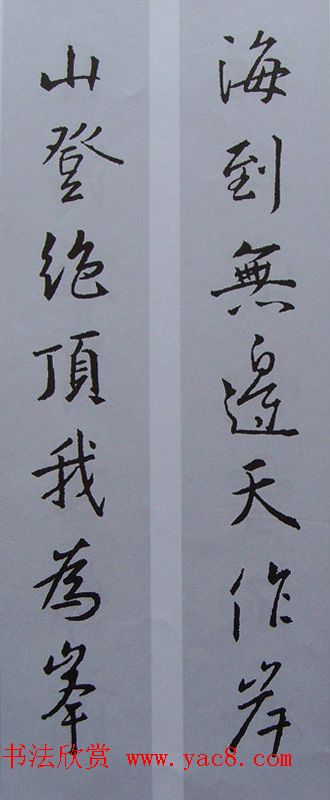 海到無邊天作岸
山登絶頂我為峯
书法欣赏 www.yac8.com